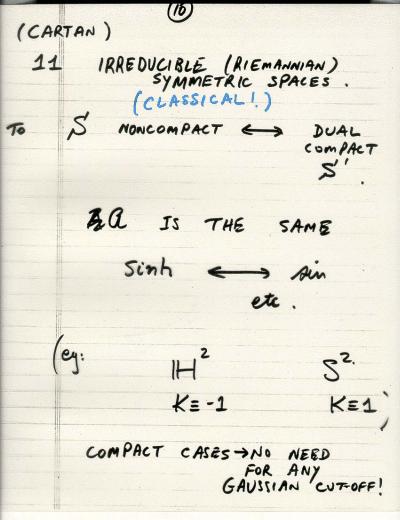 16
(CARTAN)
11 IRREDUCIBLE (RIEMANNIAN)
SYMMETRIC SPACES.
(CLASSICAL!)
TO S NONCOMPACT ↔ DUAL
COMPACT
S'.
a IS THE SAME
Sinh ↔ sin
etc.
(eg: H² S²
K≡-1 K≡1)
COMPACT CASES→NO NEED
FOR ANY
GAUSSIAN CUT-OFF!